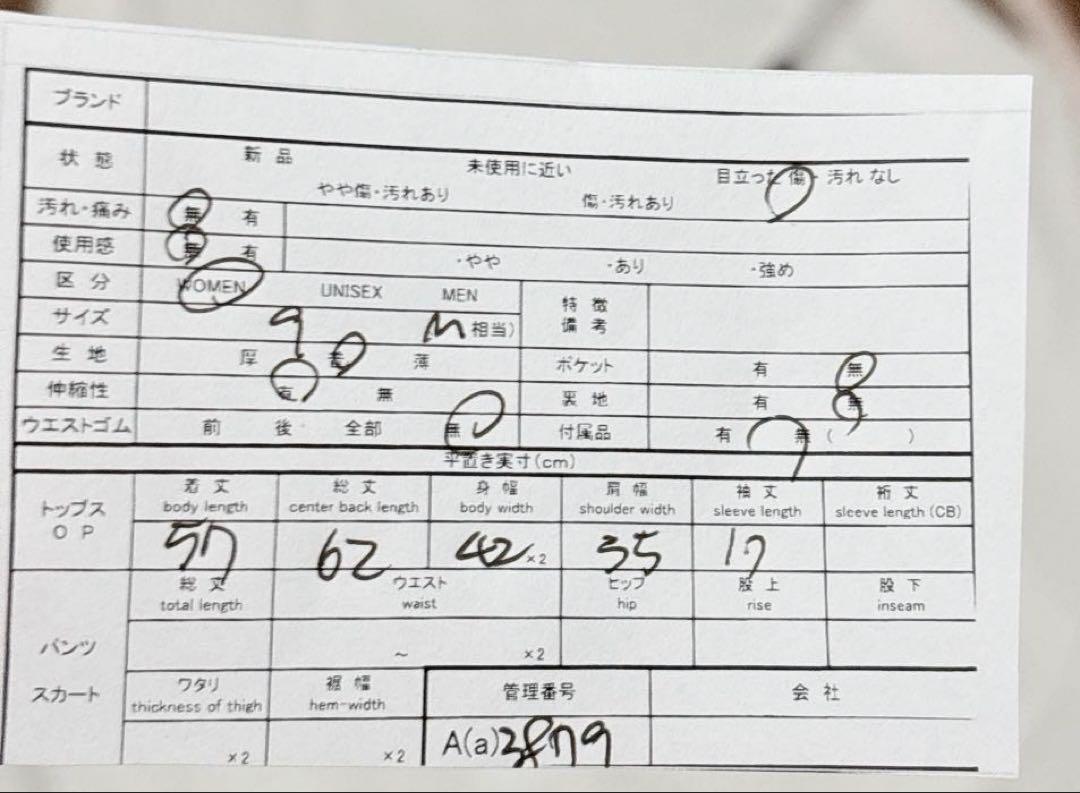 ブランド
状態 新品 未使用に近い 目立った傷・汚れなし
やや傷・汚れあり 傷・汚れあり
汚れ・痛み 無 有
使用感 無 有 ・やや ・あり ・強め
区分 WOMEN UNISEX MEN 特徴
備考
サイズ 9 M相当)
生地 厚 普 薄 ポケット 有 無
伸縮性 有 無 裏地 有 無
ウエストゴム 前 後 全部 無 付属品 有 無 ( )
平置き実寸(cm)
トップス
OP
着丈 総丈 身幅 肩幅 袖丈 裄丈
body length center back length body width shoulder width sleeve length sleeve length (CB)
57 62 42 ×2 35 17
パンツ
スカート
総丈 ウエスト ヒップ 股上 股下
total length waist hip rise inseam
~ ×2
ワタリ 裾幅 管理番号 会社
thickness of thigh hem-width
×2 ×2 A(a)3879